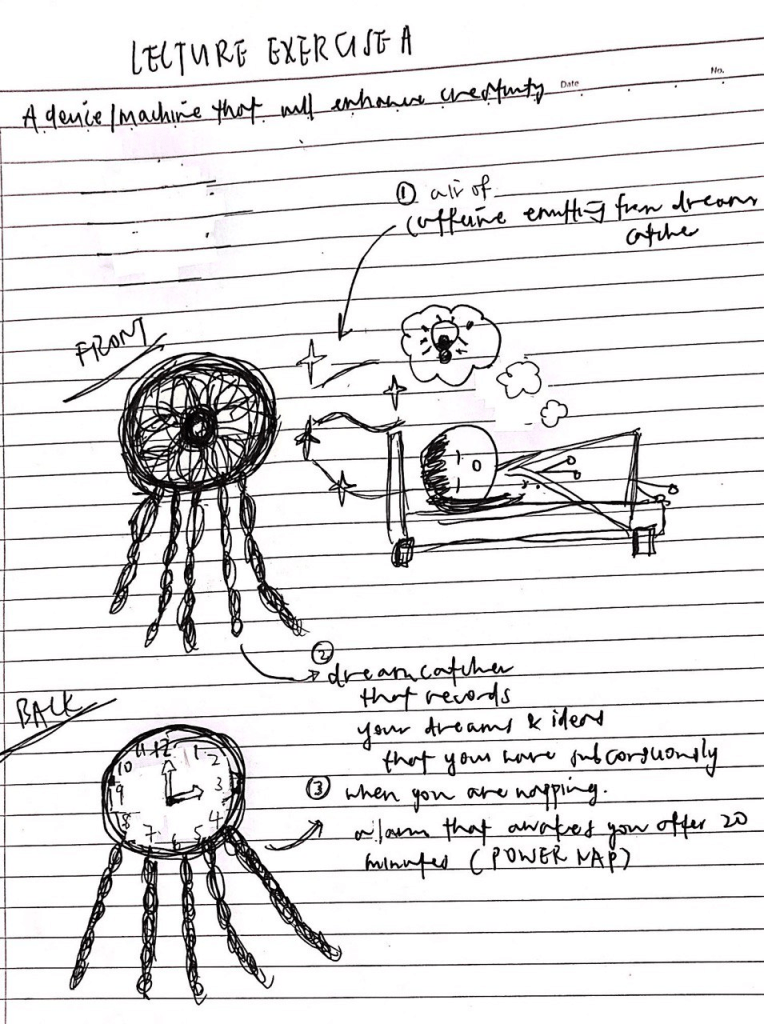 LECTURE EXERCISE A
No.
Date
A device/machine that will enhance creativity
① air of
caffeine emitting from dreams
catcher
FRONT
② dreamcatcher
that records
your dreams & ideas
that you have subconsciously
BACK
③ when you are napping.
alarm that awakes you after 20
minutes (POWER NAP)
11 12 1
10 2
9 3
8 4
7 6 5